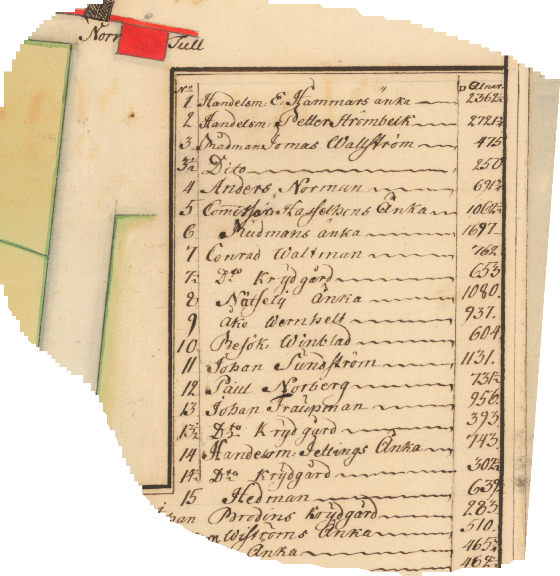 Norr Tull
No. Qv Alnar.
1 Handelsm. E. Hammars änka 2362½
2 Handelsm: Petter Strömbeck 2721¾
3 Rådman Jonas Wallström 475
3½ Dito 250
4 Anders Norman 691¾
5 Änka 1062¾
6 Rudmans änka 1697.
7 Conrad Waltman 762.
7½ Dto Krydgård 653
8 änka 1080.
9 Åke Wernhelt 937.
10 Besök: Winblad 604
11 Johan Sundström 1131.
12 Paul Norberg 731½
13 Johan Traupman 956.
13½ Dto Krydgård 393.
14 Handelsm: Jettings Änka 743.
14½ Dto Krydgård 302¾
15 Hedman 639.
Brodins Krydgård 283
Wiströms Änka 510.
änka 465¾
462¾